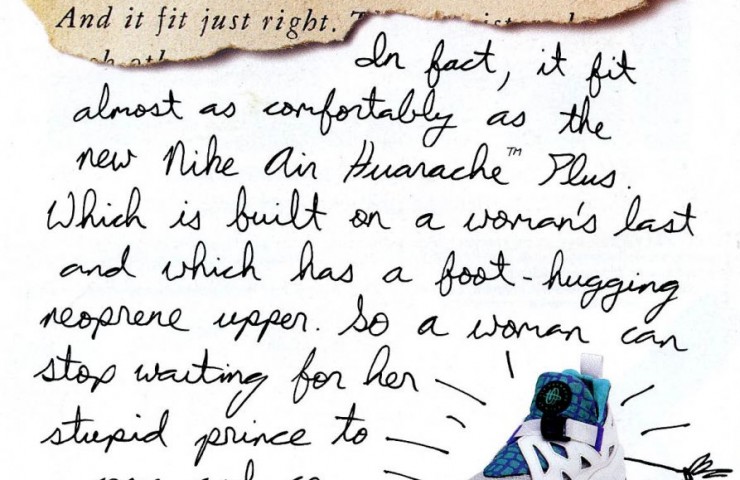 And it fit just right.
In fact, it fit
almost as comfortably as the
new Nike Air Huarache™ Plus.
Which is built on a woman's last
and which has a foot-hugging
neoprene upper. So a woman can
stop waiting for her
stupid prince to